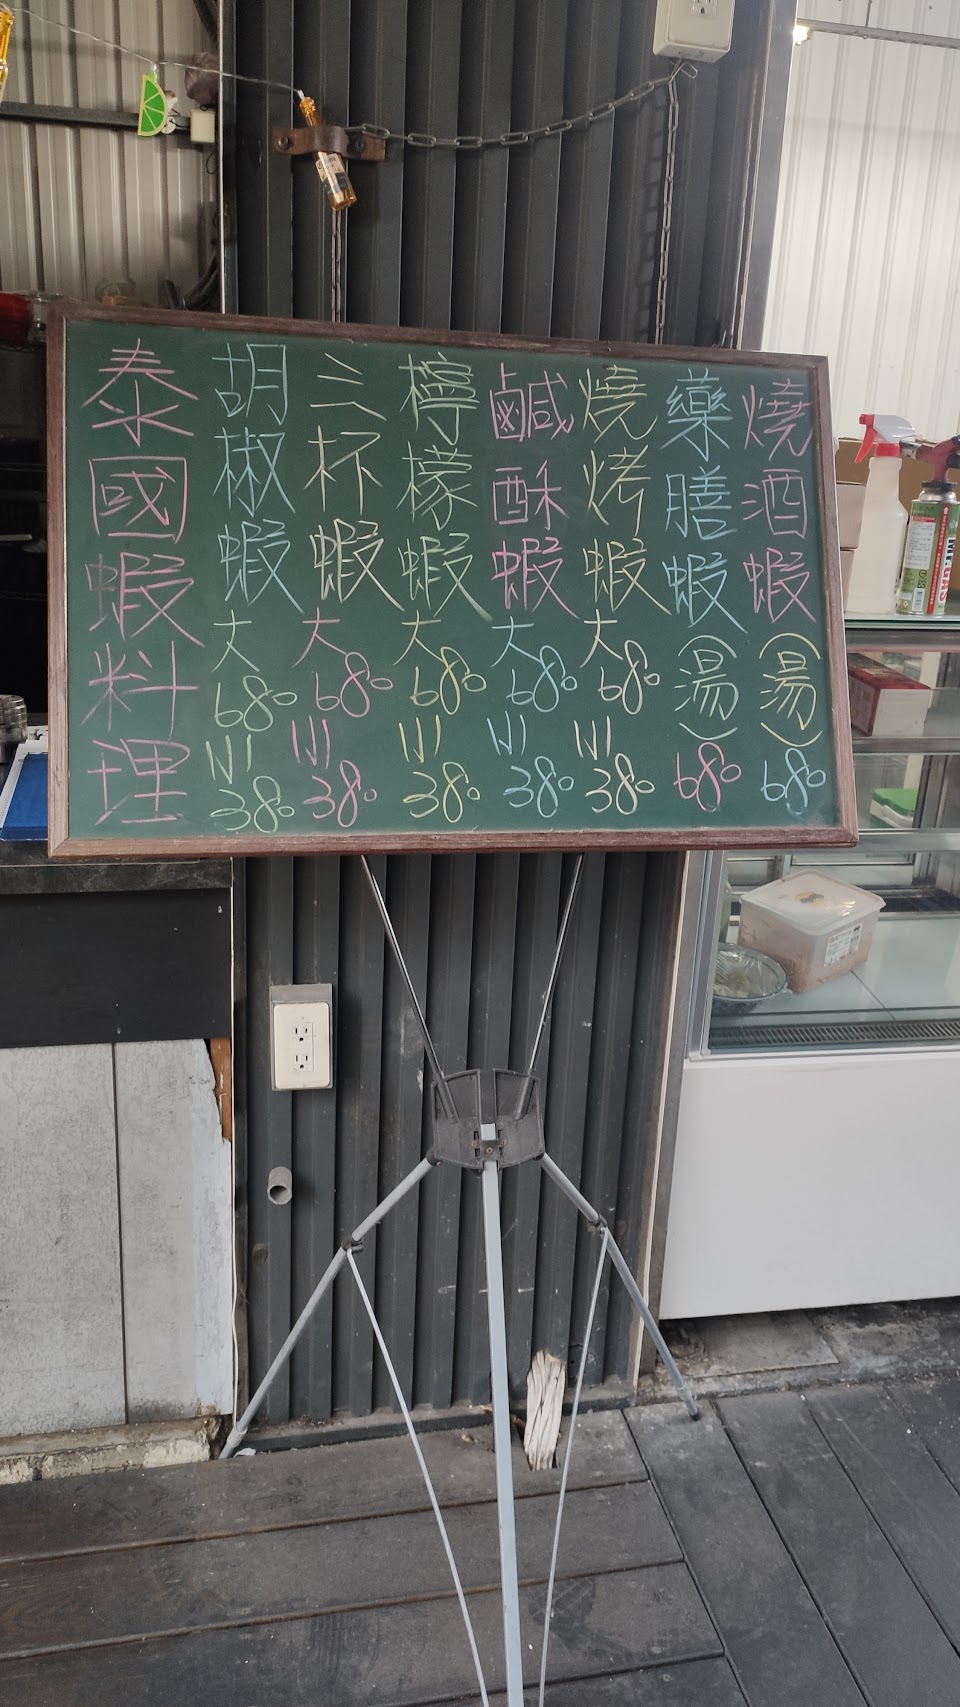 泰國蝦料理
胡椒蝦大680小380
三杯蝦大680小380
檸檬蝦大680小380
鹹酥蝦大680小380
燒烤蝦大680小380
藥膳蝦(湯)680
燒酒蝦(湯)680